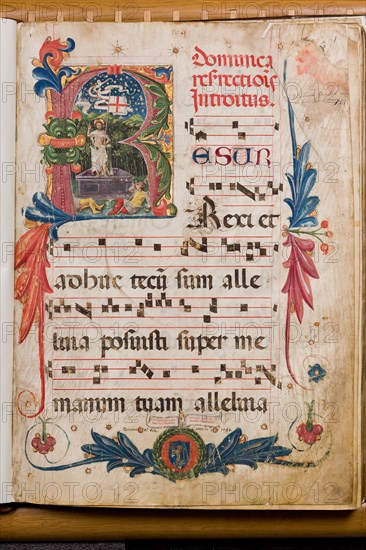 Dominica
resrectiois
Introitus.
R ESUR
Rexi et
adhuc tecū sum alle
luia posuisti super me
manum tuam alleluia
PHOTO 12